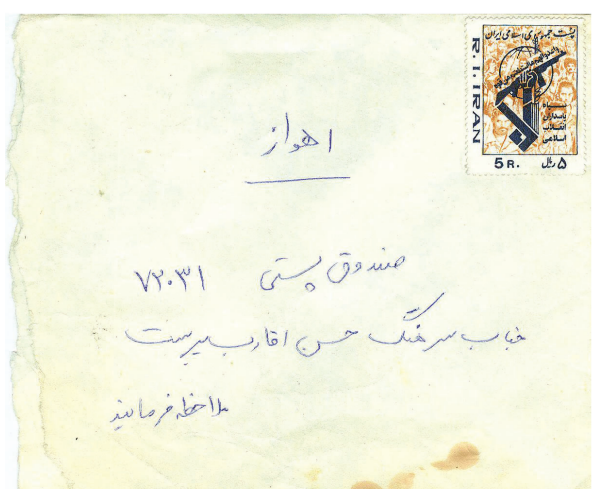 پست جمهوری اسلامی ایران
R.I.IRAN
سپاه
پاسداران
انقلاب
اسلامی
5 R. ۵ ریال
اهواز
صندوق پستی ۷۲۰۳۱
جناب سرهنگ حسن اقارب پرست
ملاحظه فرمایند